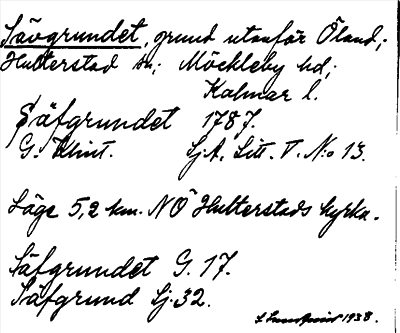 Sävgrundet, grund utanför Öland;
Hulterstad sn; Möckleby hd;
Kalmar l.
Säfgrundet 1787.
G. Klint. Sj.A. Litt. V. No 13.
Läge 5,2 km. NO Hulterstads kyrka.
Säfgrundet G. 17.
Säfgrund Sj. 32.
1938.